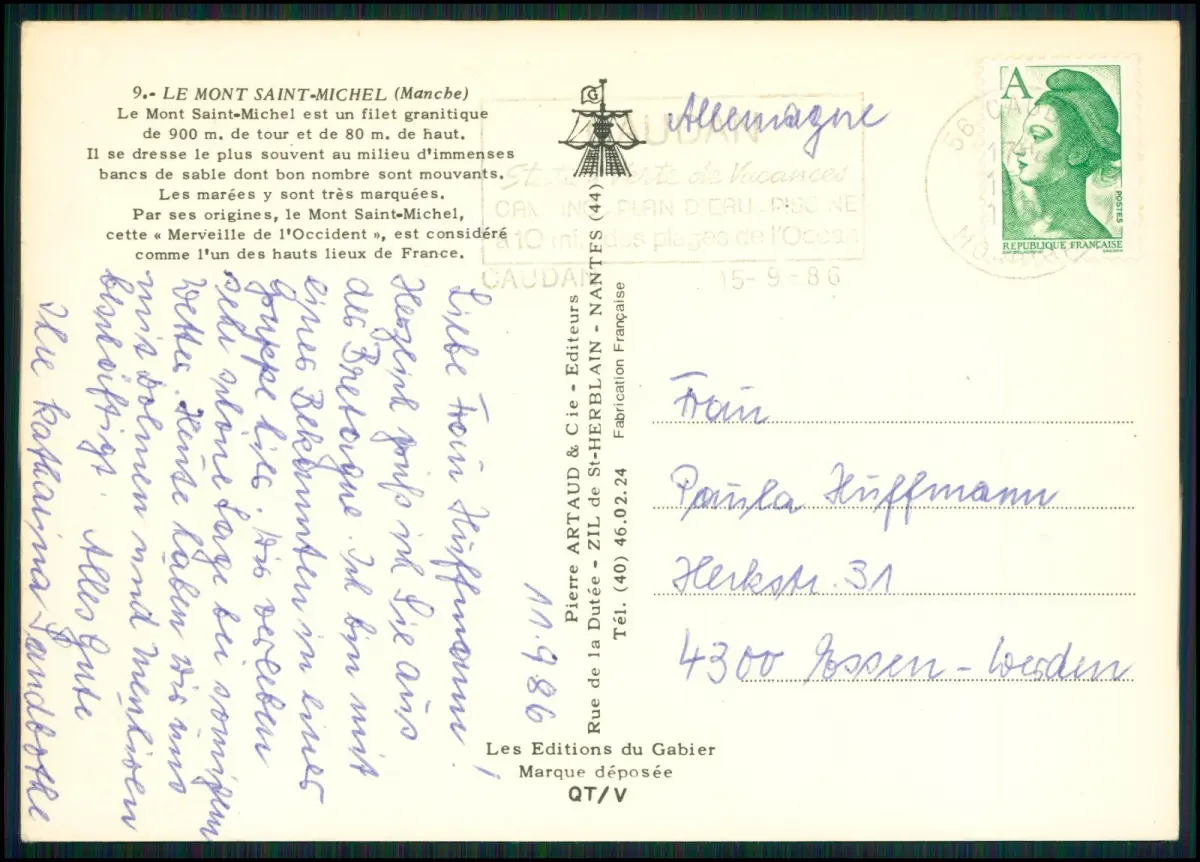 9.- LE MONT SAINT-MICHEL (Manche)
Le Mont Saint-Michel est un filet granitique
de 900 m. de tour et de 80 m. de haut.
Il se dresse le plus souvent au milieu d'immenses
bancs de sable dont bon nombre sont mouvants.
Les marées y sont très marquées.
Par ses origines, le Mont Saint-Michel,
cette « Merveille de l'Occident », est considéré
comme l'un des hauts lieux de France.
11.9.86
Liebe Frau Huffmann!
Herzlich grüß ich Sie aus
der Bretagne. Ich bin mit
einer Bekannten in einer
Gruppe hier. Wir verleben
sehr schöne Tage bei sonnigem
Wetter. Heute haben wir uns
mit Dolmen und Menhiren
beschäftigt. Alles Gute
Ihre Katharina Sandbothe
G
Pierre ARTAUD & Cie - Editeurs
Rue de la Dutée - ZIL de St-HERBLAIN - NANTES (44)
Tél. (40) 46.02.24 Fabrication Française
Les Editions du Gabier
Marque déposée
QT/V
Allemagne
CAUDAN
Verte de Vacances
CAMPING PLAN D'EAU PISCINE
à 10 min des plages de l'Océan
CAUDAN 15-9-86
56 CAUDAN
MORBIHAN
A
POSTES
REPUBLIQUE FRANÇAISE
Frau
Paula Huffmann
Herkstr. 31
4300 Essen-Werden